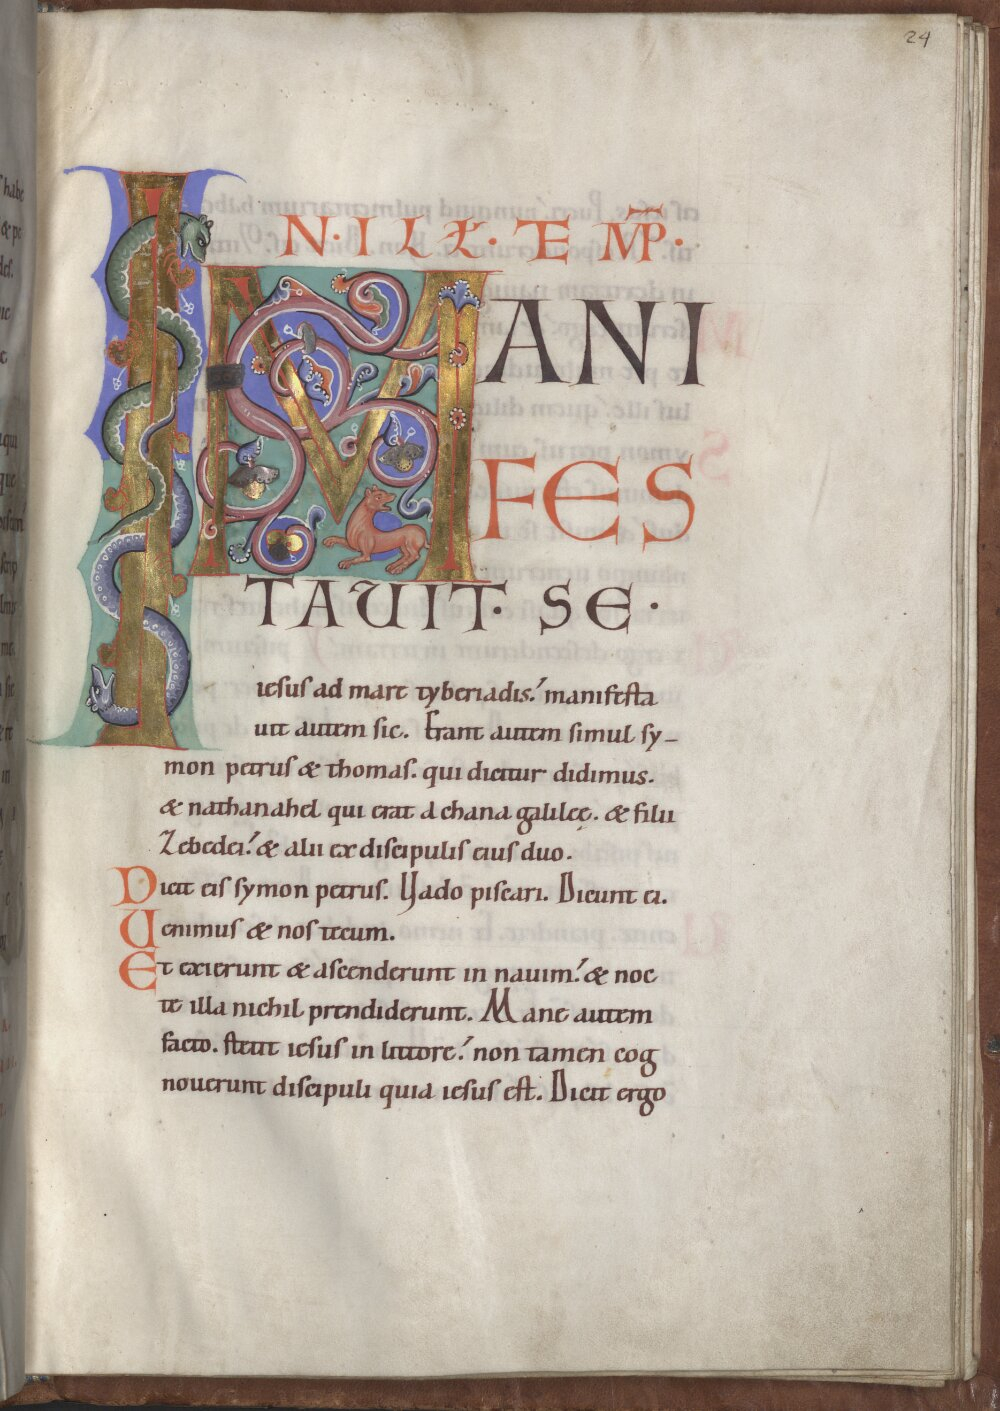 24
IN·ILL̅·TEMP̅·
MANI
FES
TAVIT·SE·
iesus ad mare tyberiadis. manifesta
uit autem sic. Erant autem simul sy-
mon petrus & thomas. qui dicitur didimus.
& nathanahel qui erat a chana galileę. & filii
Zebedei. & alii ex discipulis eius duo.
Dicit eis symon petrus. Vado piscari. Dicunt ei.
Uenimus & nos tecum.
Et exierunt & ascenderunt in nauim. & noc
te illa nichil prendiderunt. Mane autem
facto. stetit iesus in littore. non tamen cog
nouerunt discipuli quia iesus est. Dicit ergo